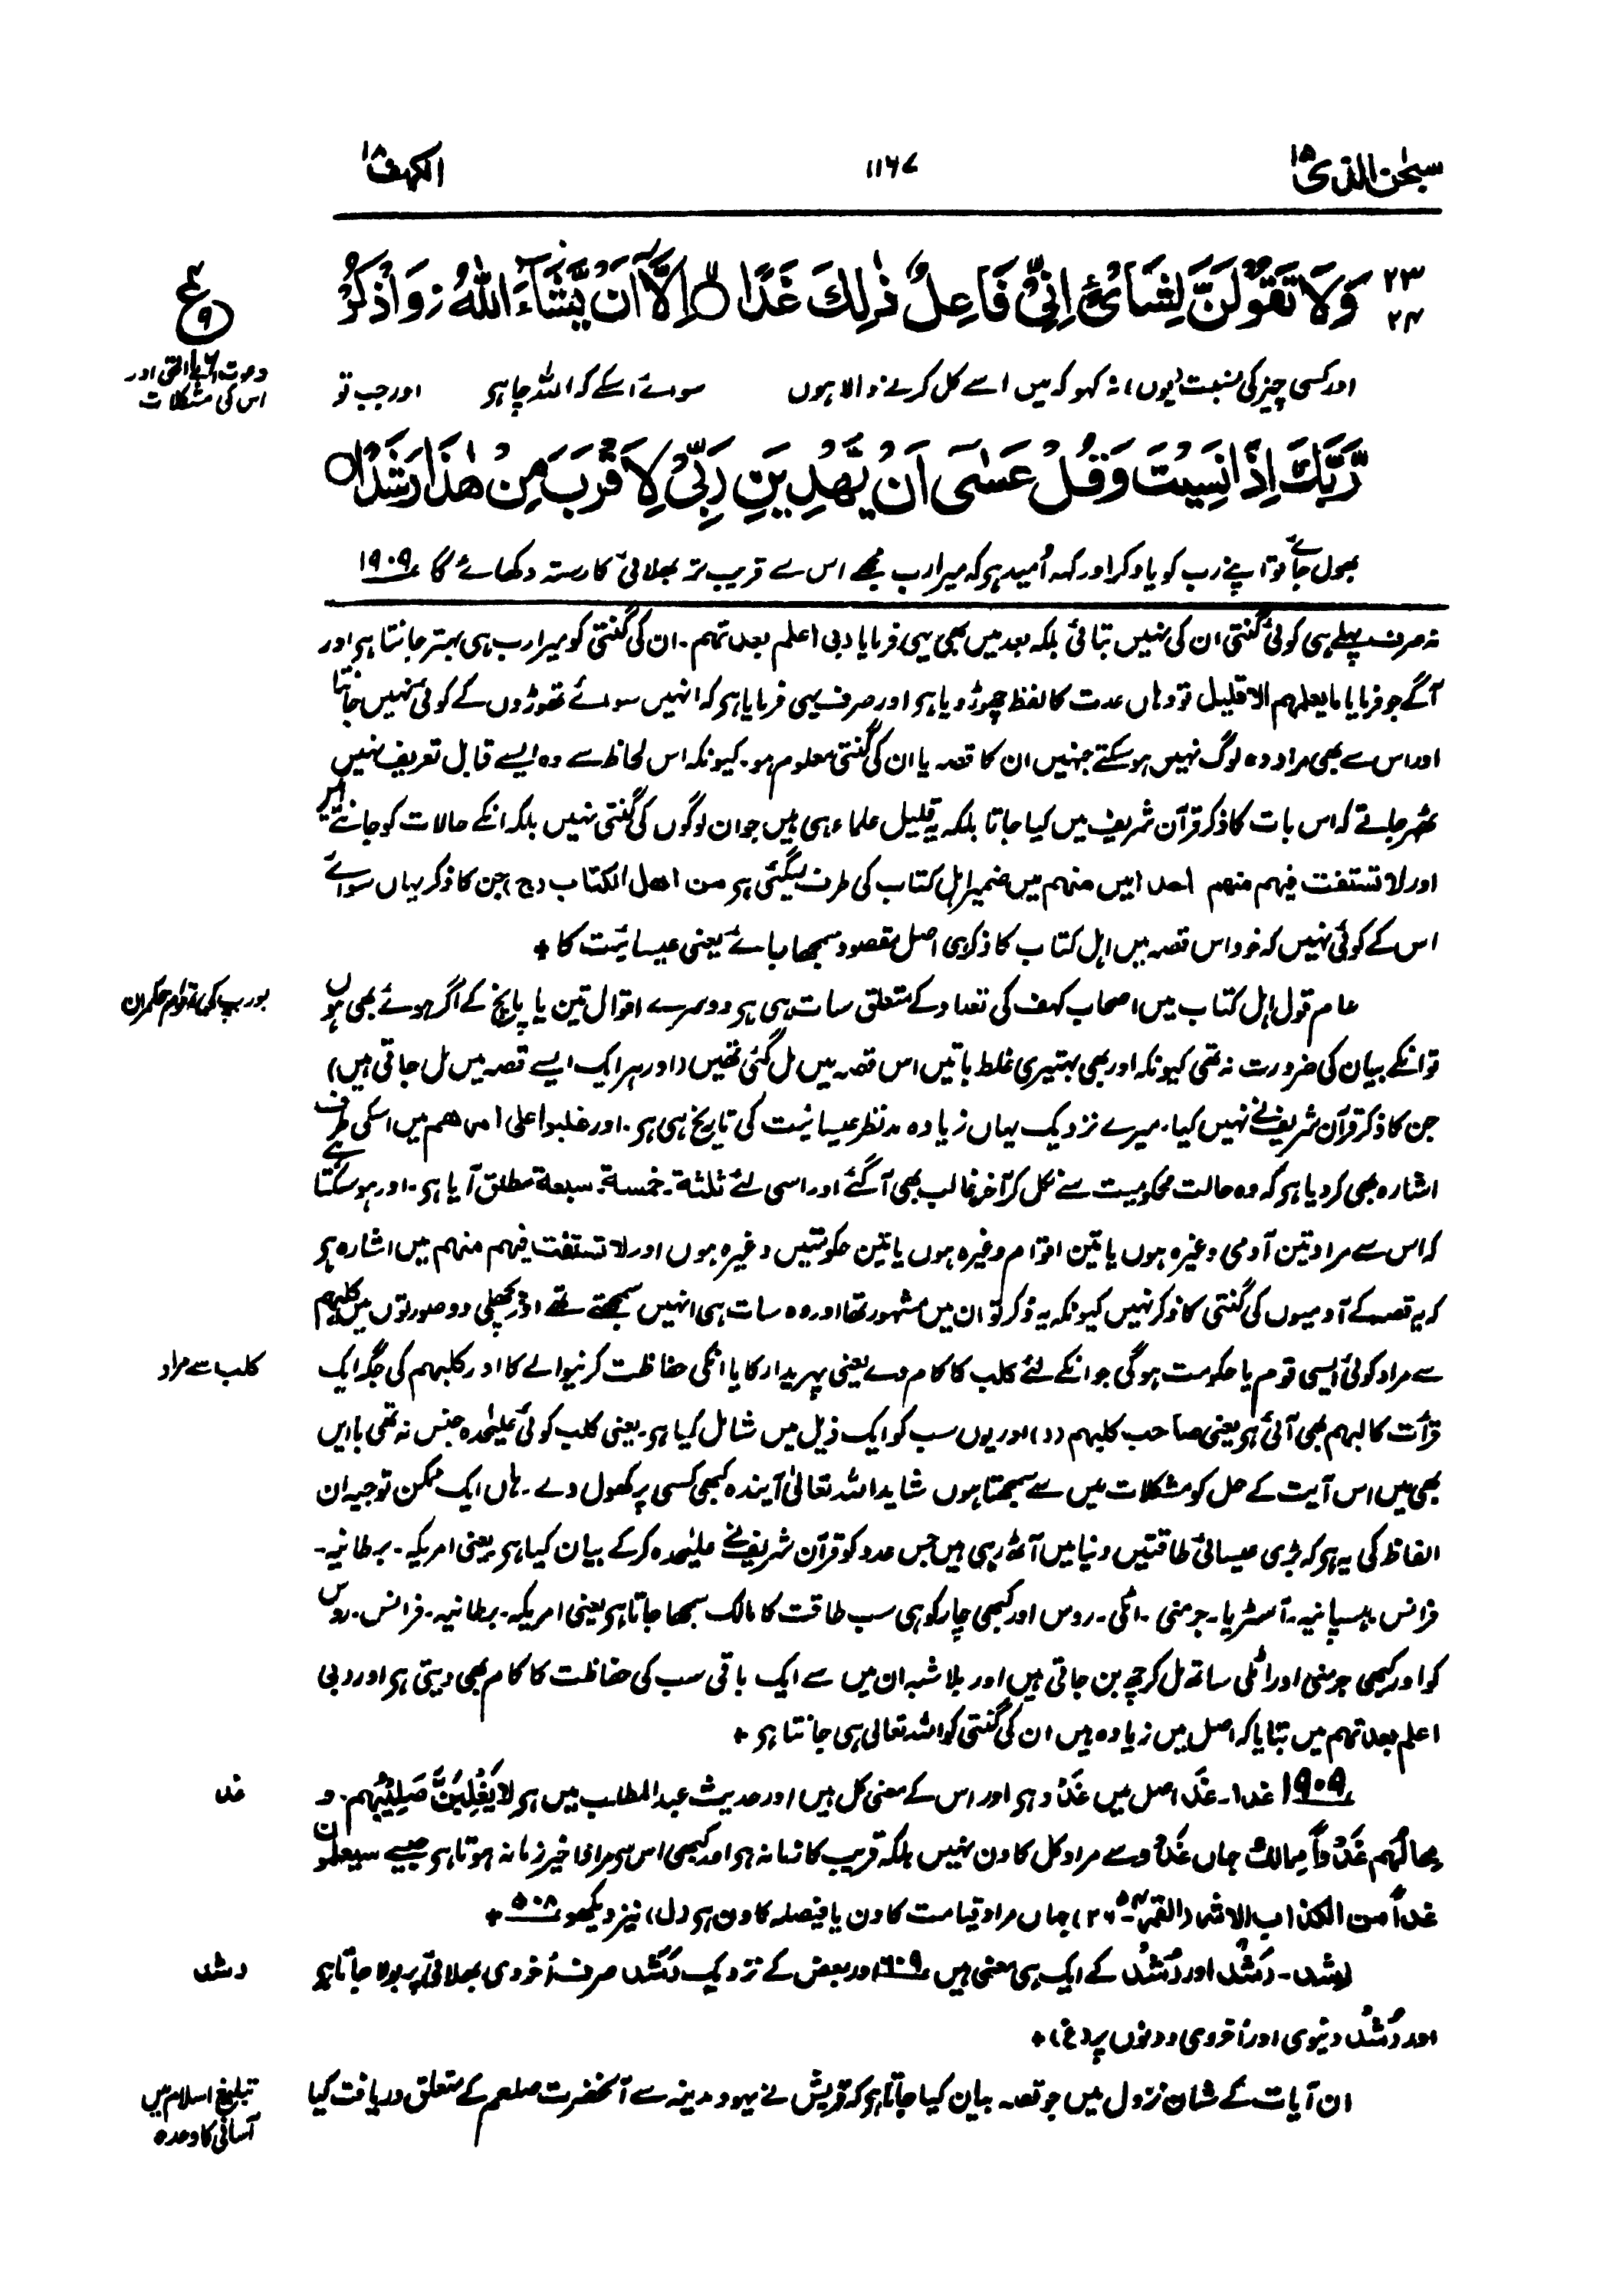 سبحٰن الذی ۱۵
۱۱۶۷
الکہف ۱۸
۲۳ وَلَا تَقُوْلَنَّ لِشَایْءٍ اِنِّیْ فَاعِلٌ ذٰلِكَ غَدًا ۙ اِلَّاۤ اَنْ یَّشَآءَ اللّٰهُ ؗ وَاذْكُرْ
۲۴
ع
۹
دعوت الی الحق اور
اس کی مشکلات
اور کسی چیز کی نسبت (یوں) نہ کہو کہ میں اسے کل کرنے والا ہوں سوائے اسکے کہ اللہ چاہو اور جب تو
رَّبَّكَ اِذَا نَسِیْتَ وَقُلْ عَسٰۤی اَنْ یَّهْدِیَنِ رَبِّیْ لِاَقْرَبَ مِنْ هٰذَا رَشَدًا
بھول جائے تو اپنے رب کو یاد کر اور کہہ اُمید ہو کہ میرا رب مجھے اس سے قریب تر بھلائی کا رستہ دکھائے گا ۱۹۰۹
نہ صرف پہلے ہی کوئی گنتی ان کی نہیں بتائی بلکہ بعد میں بھی یہی فرمایا ربی اعلم بعدتہم۔ ان کی گنتی کو میرا رب ہی بہتر جانتا ہو اور
آگے جو فرمایا ما یعلمہم الا قلیل تو وہاں عدت کا لفظ چھوڑ دیا ہو اور صرف یہی فرمایا ہو کہ انہیں سوائے تھوڑوں کے کوئی نہیں جانتا
اور اس سے بھی مراد وہ لوگ نہیں ہو سکتے جنہیں ان کا قصہ یا ان کی گنتی معلوم ہو۔ کیونکہ اس لحاظ سے وہ ایسے قابل تعریف نہیں
ٹھہر جاتے کہ اس بات کا ذکر قرآن شریف میں کیا جاتا بلکہ یہ قلیل علماء ہی ہیں جو ان لوگوں کی گنتی نہیں بلکہ انکے حالات کو جانتے ہیں
اور لا تستفت فیہم منہم احدا میں منہم میں ضمیر اہل کتاب کی طرف لیگئی ہو من اھل الکتاب (ج) جن کا ذکر یہاں سوائے
اس کے کوئی نہیں کہ خود اس قصہ میں اہل کتاب کا ذکر ہی اصل مقصود سمجھا جائے یعنی عیسائیت کا +
یورپ کی اقوام حکمران
عام قول اہل کتاب میں اصحاب کہف کی تعداد کے متعلق سات ہی ہو دوسرے اقوال تین یا پانچ کے اگر ہوئے بھی ہوں
تو انکے بیان کی ضرورت نہ تھی کیونکہ اور بھی بہتیری غلط باتیں اس قصہ میں مل گئی تھیں (اور ہر ایک ایسے قصہ میں مل جاتی ہیں)
جن کا ذکر قرآن شریف نے نہیں کیا۔ میرے نزدیک یہاں زیادہ مدنظر عیسائیت کی تاریخ ہی ہو۔ اور غلبوا علی امرھم میں اسکی طرف
اشارہ بھی کر دیا ہو کہ وہ حالت محکومیت سے نکل کر آخر غالب بھی آگئے اور اسی لئے ثلثۃ۔ خمسۃ۔ سبعۃ مطلق آیا ہو۔ اور ہو سکتا ہے
کہ اس سے مراد تین آدمی وغیرہ ہوں یا تین اقوام وغیرہ ہوں یا تین حکومتیں وغیرہ ہوں اور لا تستفت فیہم منہم میں اشارہ ہو
کہ یہ قصہ کے آدمیوں کی گنتی کا ذکر نہیں کیونکہ یہ ذکر تو ان میں مشہور تھا اور وہ سات ہی انہیں سمجھتے تھے اور پچھلی دو صورتوں میں کلبہم
کلب سے مراد
سے مراد کوئی ایسی قوم یا حکومت ہوگی جو انکے لئے کلب کا کام دے یعنی پہریدار کا یا انکی حفاظت کرنیوالے کا اور کلبہم کی جگہ ایک
قرأت کالبہم بھی آئی ہو یعنی صاحب کلبہم (د) اور یوں سب کو ایک ذیل میں شامل کیا ہو۔ یعنی کلب کوئی علیٰحدہ جنس نہ تھی بایں
بھی میں اس آیت کے حل کو مشکلات میں سے سمجھتا ہوں شاید اللہ تعالیٰ آیندہ کبھی کسی پر کھول دے۔ ہاں ایک ممکن توجیہ ان
الفاظ کی یہ ہو کہ بڑی عیسائی طاقتیں دنیا میں آٹھ رہی ہیں جس عدد کو قرآن شریف نے علیٰحدہ کر کے بیان کیا ہو یعنی امریکہ۔ برطانیہ۔
فرانس۔ ہسپانیہ۔ آسٹریا۔ جرمنی۔ اٹلی۔ روس اور کبھی چار کو ہی سب طاقت کا مالک سمجھا جاتا ہو یعنی امریکہ۔ برطانیہ۔ فرانس۔ روس
کو اور کبھی جرمنی اور اٹلی ساتھ مل کر چھ بن جاتی ہیں اور بلاشبہ ان میں سے ایک باقی سب کی حفاظت کا کام بھی دیتی ہو اور ربی
اعلم بعدتہم میں بتایا کہ اصل میں زیادہ ہیں ان کی گنتی کو اللہ تعالیٰ ہی جانتا ہو +
غد
۱۹۰۹ غدا۔ غَد اصل میں غَدْو ہو اور اس کے معنی کل ہیں اور حدیث عبد المطلب میں ہو لا یَغْلِبَنَّ صَلِیْبُہم۔ و
محالُہم غَدْواً مِحالَك جہاں غَدْو سے مراد کل کا دن نہیں بلکہ قریب کا زمانہ ہو اور کبھی اس سے مراد اخیر زمانہ ہوتا ہو جیسے سیعلمون
غداً من الکذاب الاشر (القمر ۵۴۔ ۲۶) جہاں مراد قیامت کا دن یا فیصلہ کا دن ہو (ل) نیز دیکھو ۵۰۸ +
رشد
رشد۔ رَشَد اور رُشْد کے ایک ہی معنی ہیں ۶۰۹ اور بعض کے نزدیک رَشَد صرف اُخروی بھلائی پر بولا جاتا ہو
اور رُشْد دنیوی اور اُخروی دونوں پر (غ) +
تبلیغ اسلام میں
آسانی کا وعدہ
ان آیات کے شان نزول میں جو قصہ بیان کیا جاتا ہو کہ قریش نے یہود مدینہ سے آنحضرت صلعم کے متعلق دریافت کیا